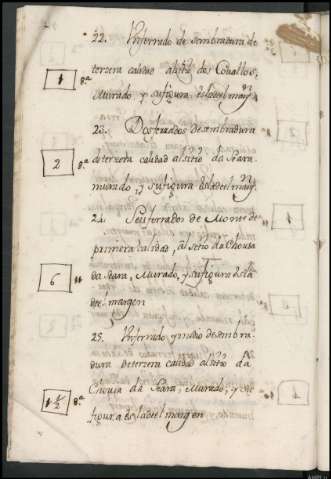 22. Un ferrado de sembradura de
tercera calidad al sitio dos Cavallos,
1 8.ª
Murado, y su figura es la del marg.n
23. Dos ferrados de sembradura
2 8.ª
de terzera calidad al sitio da Seara
murado, y su figura es la del marg.n
24. Seis ferrados de Monte de
primera calidad, al sitio da Chousa
6 11
da Seara, Murado, y su figura es la
del margen
25. Un ferrado y medio de sembra-
dura de terzera calidad al sitio da
1 1/2 8.ª
Chousa da Seara, Murado, y su
figura es la del margen